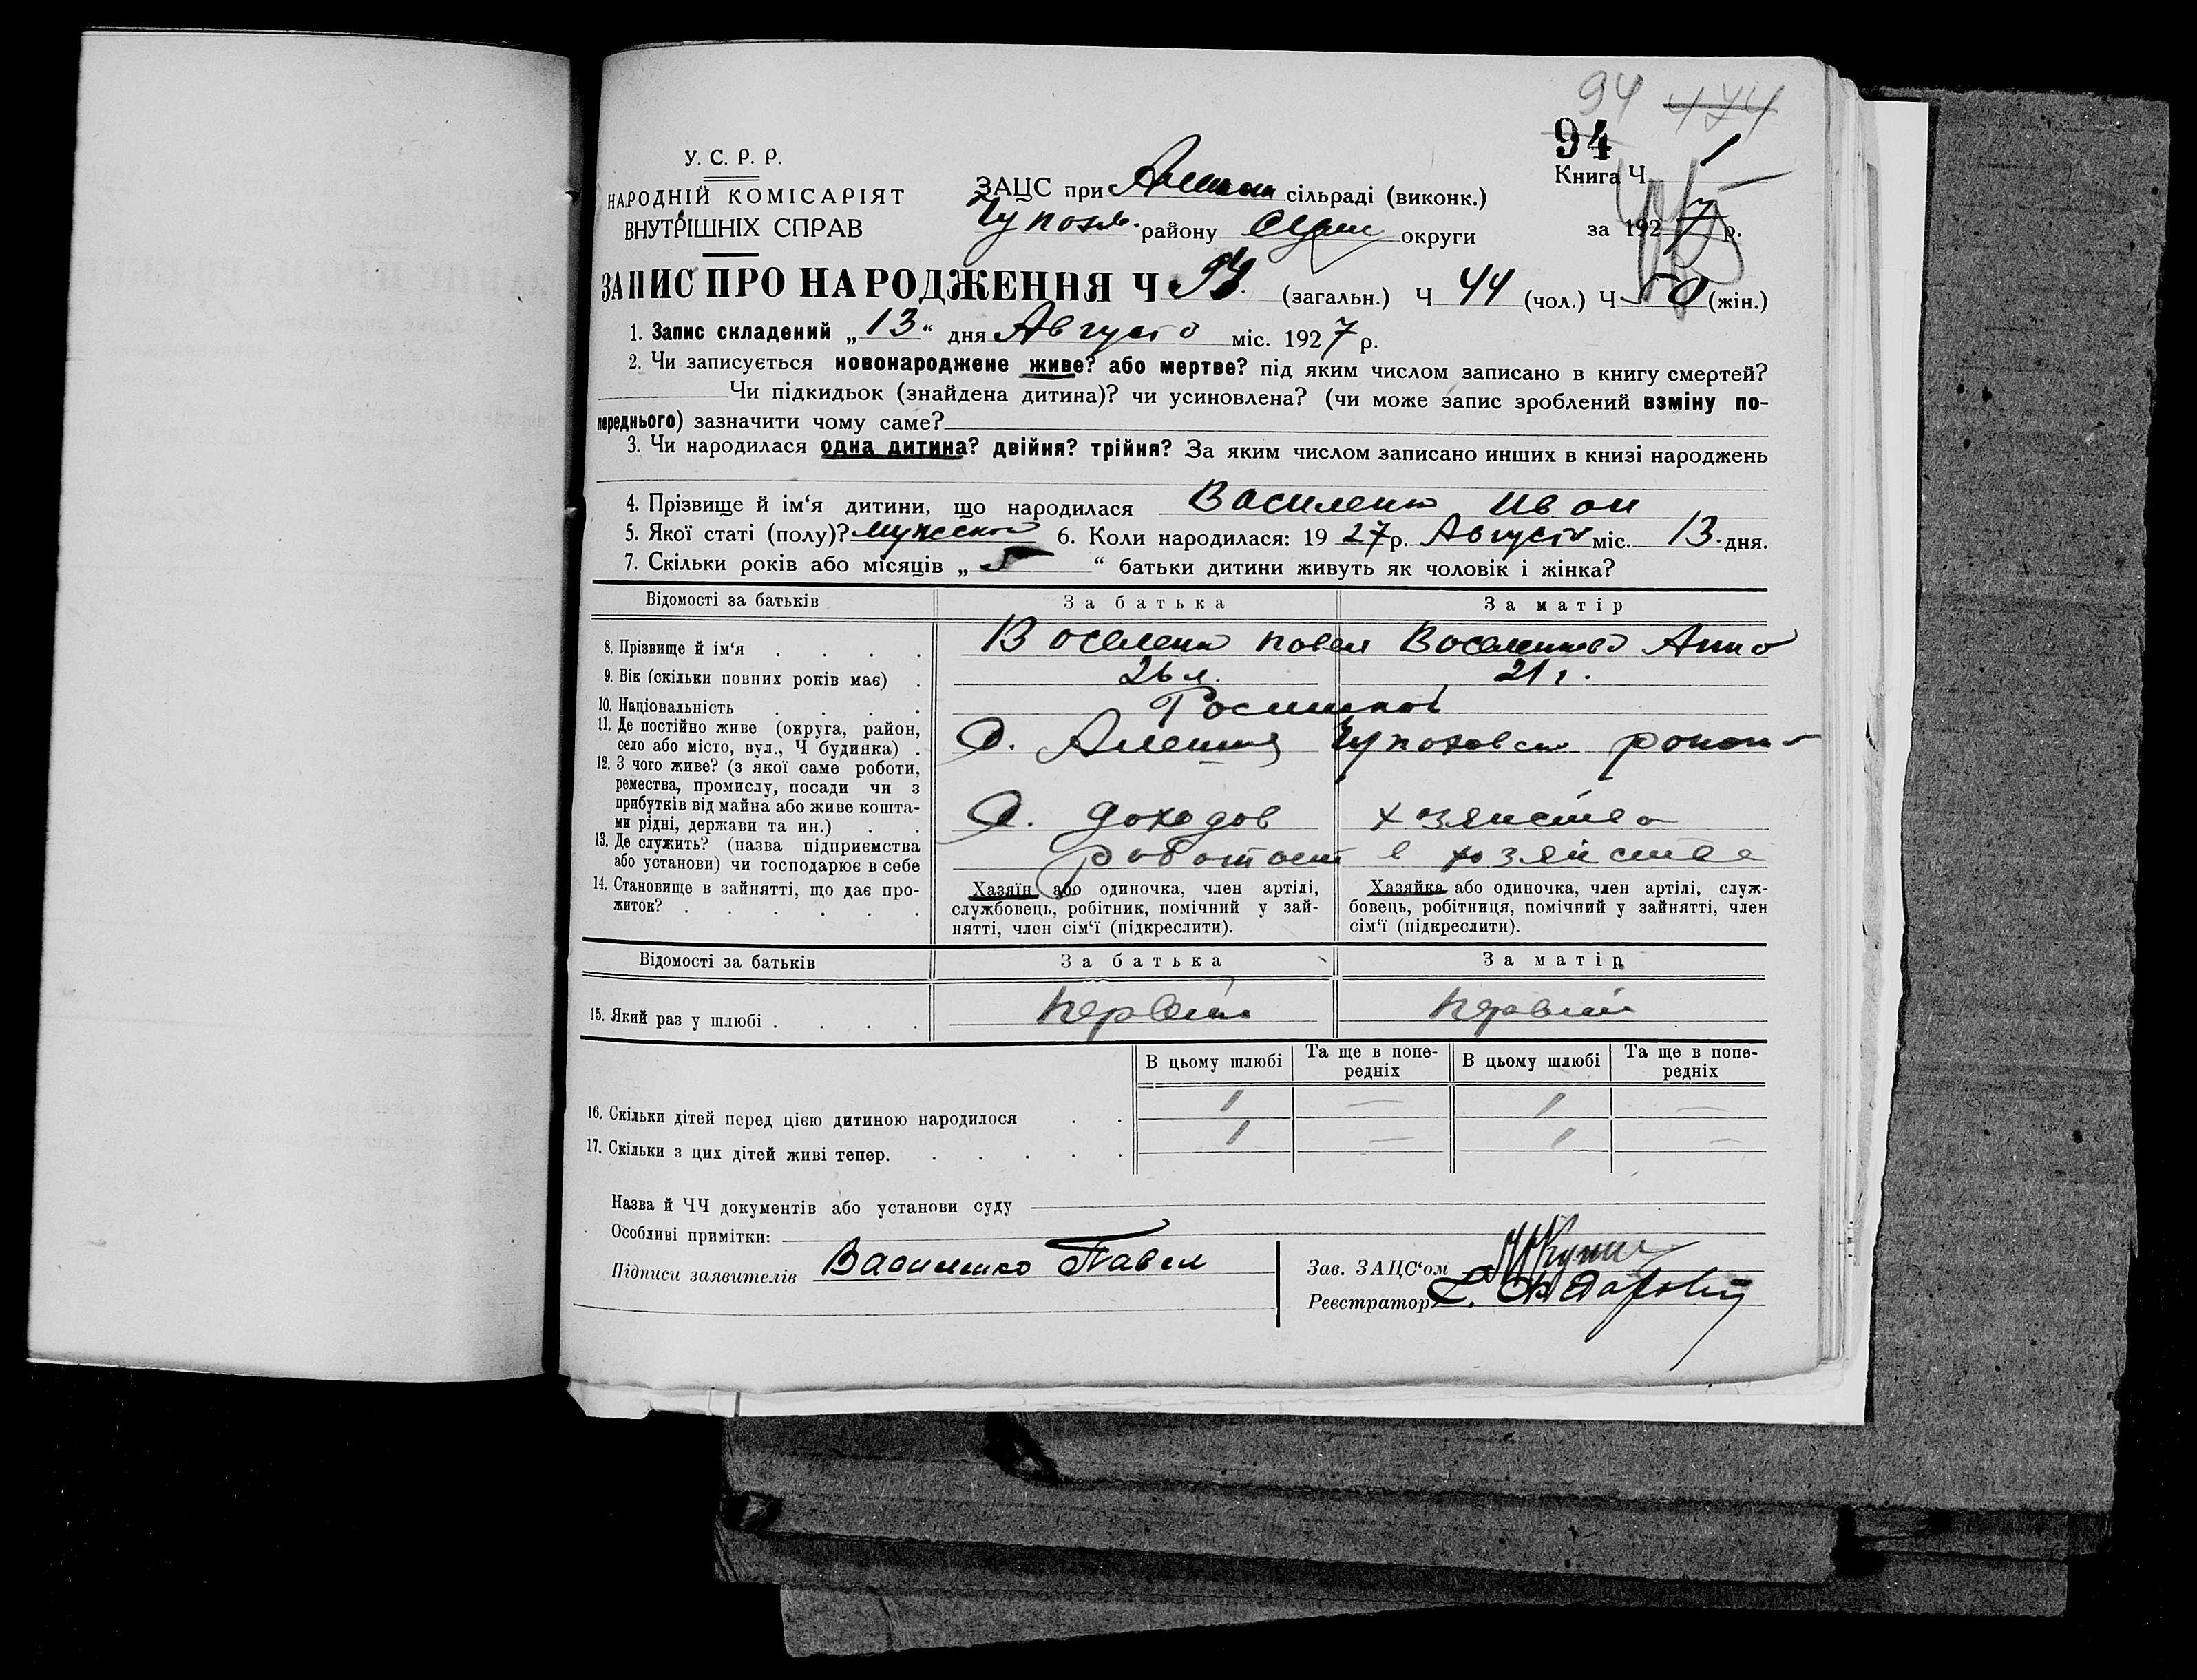 94 474
94
У. С. Р. Р.
НАРОДНІЙ КОМІСАРІЯТ
ВНУТРІШНІХ СПРАВ
ЗАЦС при сільраді (виконк.)
району Сум округи
Книга Ч 1
за 1927 р.
ЗАПИС ПРО НАРОДЖЕННЯ Ч 94. (загальн.) Ч 44 (чол.) Ч 50 (жін.)
1. Запис складений „13“ дня Августа міс. 1927 р.
2. Чи записується новонароджене живе? або мертве? під яким числом записано в книгу смертей?
Чи підкидьок (знайдена дитина)? чи усиновлена? (чи може запис зроблений взміну по-
переднього) зазначити чому саме?
3. Чи народилася одна дитина? двійня? трійня? За яким числом записано инших в книзі народжень
4. Прізвище й ім‘я дитини, що народилася Василенко Иван
5. Якої статі (полу)? мужской 6. Коли народилася: 1927 р. Августа міс. 13. дня.
7. Скільки років або місяців „ 5 “ батьки дитини живуть як чоловік і жінка?
Відомості за батьків За батька За матір
8. Прізвище й ім‘я . . . . Василенко Павел Василенкова Анна
9. Вік (скільки повних років має) . 26 л. 21 г.
10. Національність . . . .
11. Де постійно живе (округа, район,
село або місто, вул., Ч будинка) .
12. З чого живе? (з якої саме роботи,
ремества, промислу, посади чи з
прибутків від майна або живе кошта-
ми рідні, держави та ин.) . . С. доходов хозяйства
13. Де служить? (назва підприємства
або установи) чи господарює в себе работает в хозяйстве
14. Становище в зайнятті, що дає про-
житок? . . . . . .
Хазяїн або одиночка, член артілі,
службовець, робітник, помічний у зай-
нятті, член сім‘ї (підкреслити).
Хазяйка або одиночка, член артілі, служ-
бовець, робітниця, помічний у зайнятті, член
сім‘ї (підкреслити).
Відомості за батьків За батька За матір
15. Який раз у шлюбі . . . . первый первый
В цьому шлюбі Та ще в попе-
редніх В цьому шлюбі Та ще в попе-
редніх
16. Скільки дітей перед цією дитиною народилося . . 1 — 1 —
17. Скільки з цих дітей живі тепер. . . . . . 1 — 1 —
Назва й ЧЧ документів або установи суду
Особливі примітки:
Підписи заявителів Василенко Павел
Зав. ЗАЦС‘ом
Реєстратор